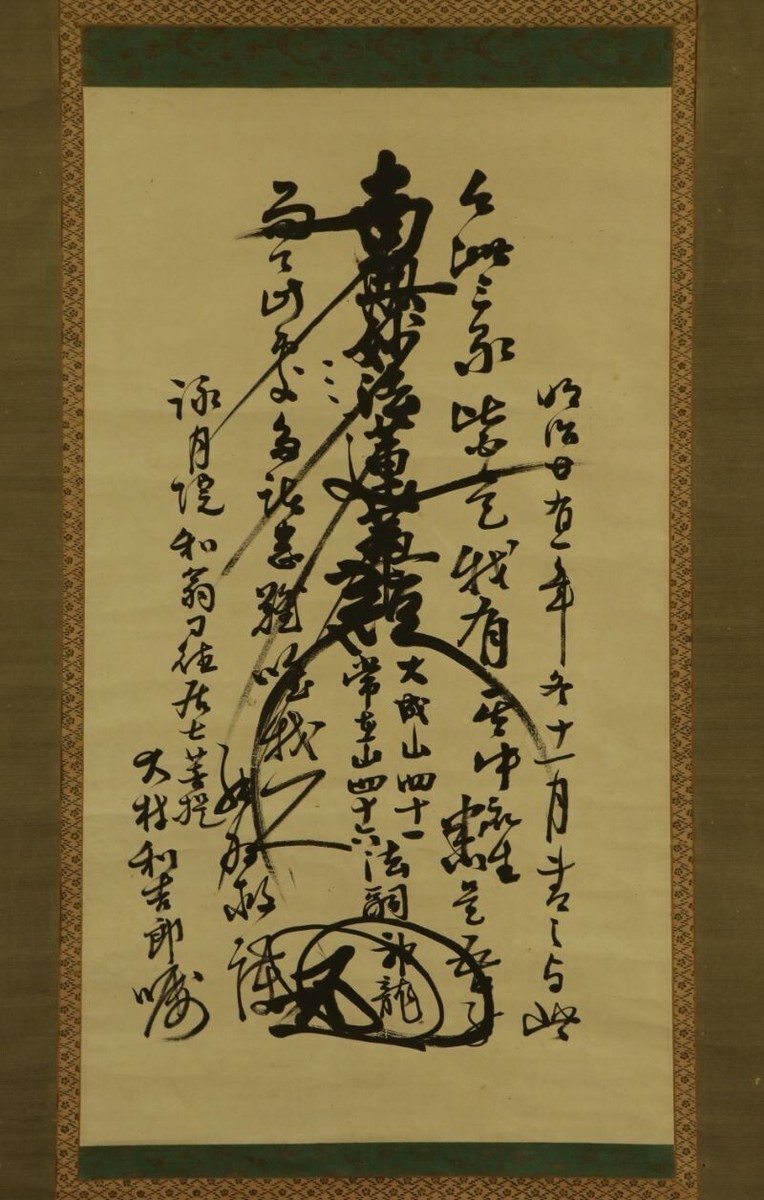 明治廿有一年冬十一月書之与此
今此三界皆是我有其中衆生悉是吾子
南無妙法蓮華経
大成山四十一
常在山四十六
法嗣
神龍
而今此處多諸患難唯我一人
能為救護
詠月院和翁日徳居士菩提
大村和吉郎嘱